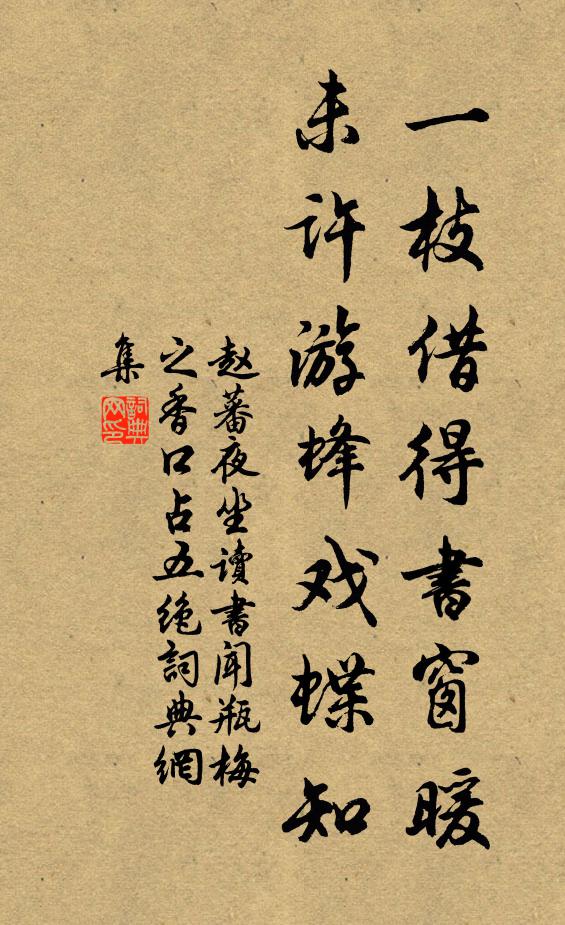 一枝借得書窗暖
未许游蜂戏蝶知
赵蕃夜坐讀書闻瓶梅
之香口占五绝詞典網
集
詞典网印